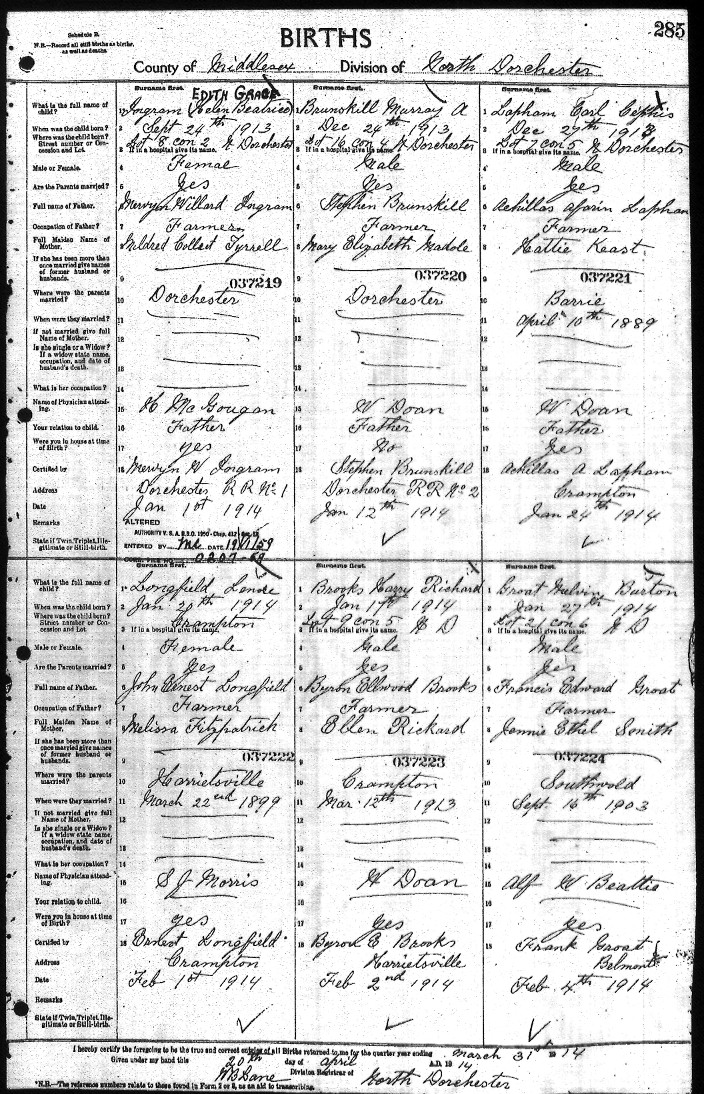 Schedule B.
N.B.—Record all still births as births, as well as deaths
BIRTHS
285
County of Middlesex Division of North Dorchester
Surname first. Surname first. Surname first.
EDITH GRACE
What is the full name of child? 1 Ingram (Helen Beatrice) 1 Brunskill Murray A 1 Lapham Earl Cephis
When was the child born? 2 Sept 24th 1913 2 Dec 24th 1913 2 Dec 29th 1913
Where was the child born? Street number or Concession and Lot. 3 Lot 8 con 2 N Dorchester 3 Lot 16 con 4 N Dorchester 3 Lot 7 con 5 N Dorchester
If in a hospital give its name. If in a hospital give its name.
Male or Female. 4 Femae 4 Male 4 Male
Are the Parents married? 5 Yes 5 Yes 5 Yes
Full name of Father. 6 Mervyn Willard Ingram 6 Stephen Brunskill 6 Achillas Lapham
Occupation of Father? 7 Farmer 7 Farmer 7 Farmer
Full Maiden Name of Mother. 8 Mildred Tyrrell 8 Mary Elizabeth Madole 8 Hattie Keast
If she has been more than once married give names of former husband or husbands. 9 9 9
037219 037220 037221
Where were the parents married? 10 Dorchester 10 Dorchester 10 Barrie
When were they married? 11 11 11 April 10th 1889
If not married give full Name of Mother. 12 12 12
Is she single or a Widow? If a widow state name, occupation, and date of husband's death. 13 13 13
What is her occupation? 14 14 14
Name of Physician attending. 15 H McGougan 15 W Doan 15 W Doan
Your relation to child. 16 Father 16 Father 16 Father
Were you in house at time of Birth? 17 yes 17 No 17 Yes
Certified by 18 Mervyn W Ingram 18 Stephen Brunskill 18 Achillas A Lapham
Address Dorchester R R No 1 Dorchester R R No 2 Crampton
Date Jan 1st 1914 Jan 12th 1914 Jan 24th 1914
Remarks ALTERED
State if Twin, Triplet, Illegitimate or Still-birth. AUTHORITY V. S. A. R.S.O. 1950 - Chap. 412
ENTERED BY DATE 19/1/59
Surname first. Surname first. Surname first.
What is the full name of child? 1 Longfield Lenore 1 Brooks Harry Richard 1 Groat Melvin Burton
When was the child born? 2 Jan 20th 1914 2 Jan 17th 1914 2 Jan 27th 1914
Where was the child born? Street number or Concession and Lot. 3 Crampton 3 Lot 9 con 5 N D 3 Lot 21 con 6 N D
If in a hospital give its name. If in a hospital give its name. If in a hospital give its name.
Male or Female. 4 Female 4 Male 4 Male
Are the Parents married? 5 Yes 5 Yes 5 Yes
Full name of Father. 6 John Ernest Longfield 6 Byron Ellwood Brooks 6 Francis Edward Groat
Occupation of Father? 7 Farmer 7 Farmer 7 Farmer
Full Maiden Name of Mother. 8 Melissa Fitzpatrick 8 Ellen Rickard 8 Jennie Ethel Smith
If she has been more than once married give names of former husband or husbands. 9 9 9
037222 037223 037224
Where were the parents married? 10 Harrietsville 10 Crampton 10 Southwold
When were they married? 11 March 22nd 1899 11 Mar. 12th 1913 11 Sept. 16th 1903
If not married give full Name of Mother. 12 12 12
Is she single or a Widow? If a widow state name, occupation, and date of husband's death. 13 13 13
What is her occupation? 14 14 14
Name of Physician attending. 15 S J Morris 15 W Doan 15 Alf W Beattie
Your relation to child. 16 16 16
Were you in house at time of Birth? 17 yes 17 Yes 17 yes
Certified by 18 Ernest Longfield 18 Byron E Brooks 18 Frank Groat
Address Crampton Harrietsville Belmont
Date Feb 1st 1914 Feb 2nd 1914 Feb 4th 1914
Remarks
State if Twin, Triplet, Illegitimate or Still-birth.
I hereby certify the foregoing to be the true and correct entries of all Births returned to me for the quarter year ending March 31st 1914
Given under my hand this 20th day of April A.D. 1914
W B Lane Division Registrar of North Dorchester
*N.B.—The reference numbers relate to those found in Form 2 or 3, as an aid to transcribing.